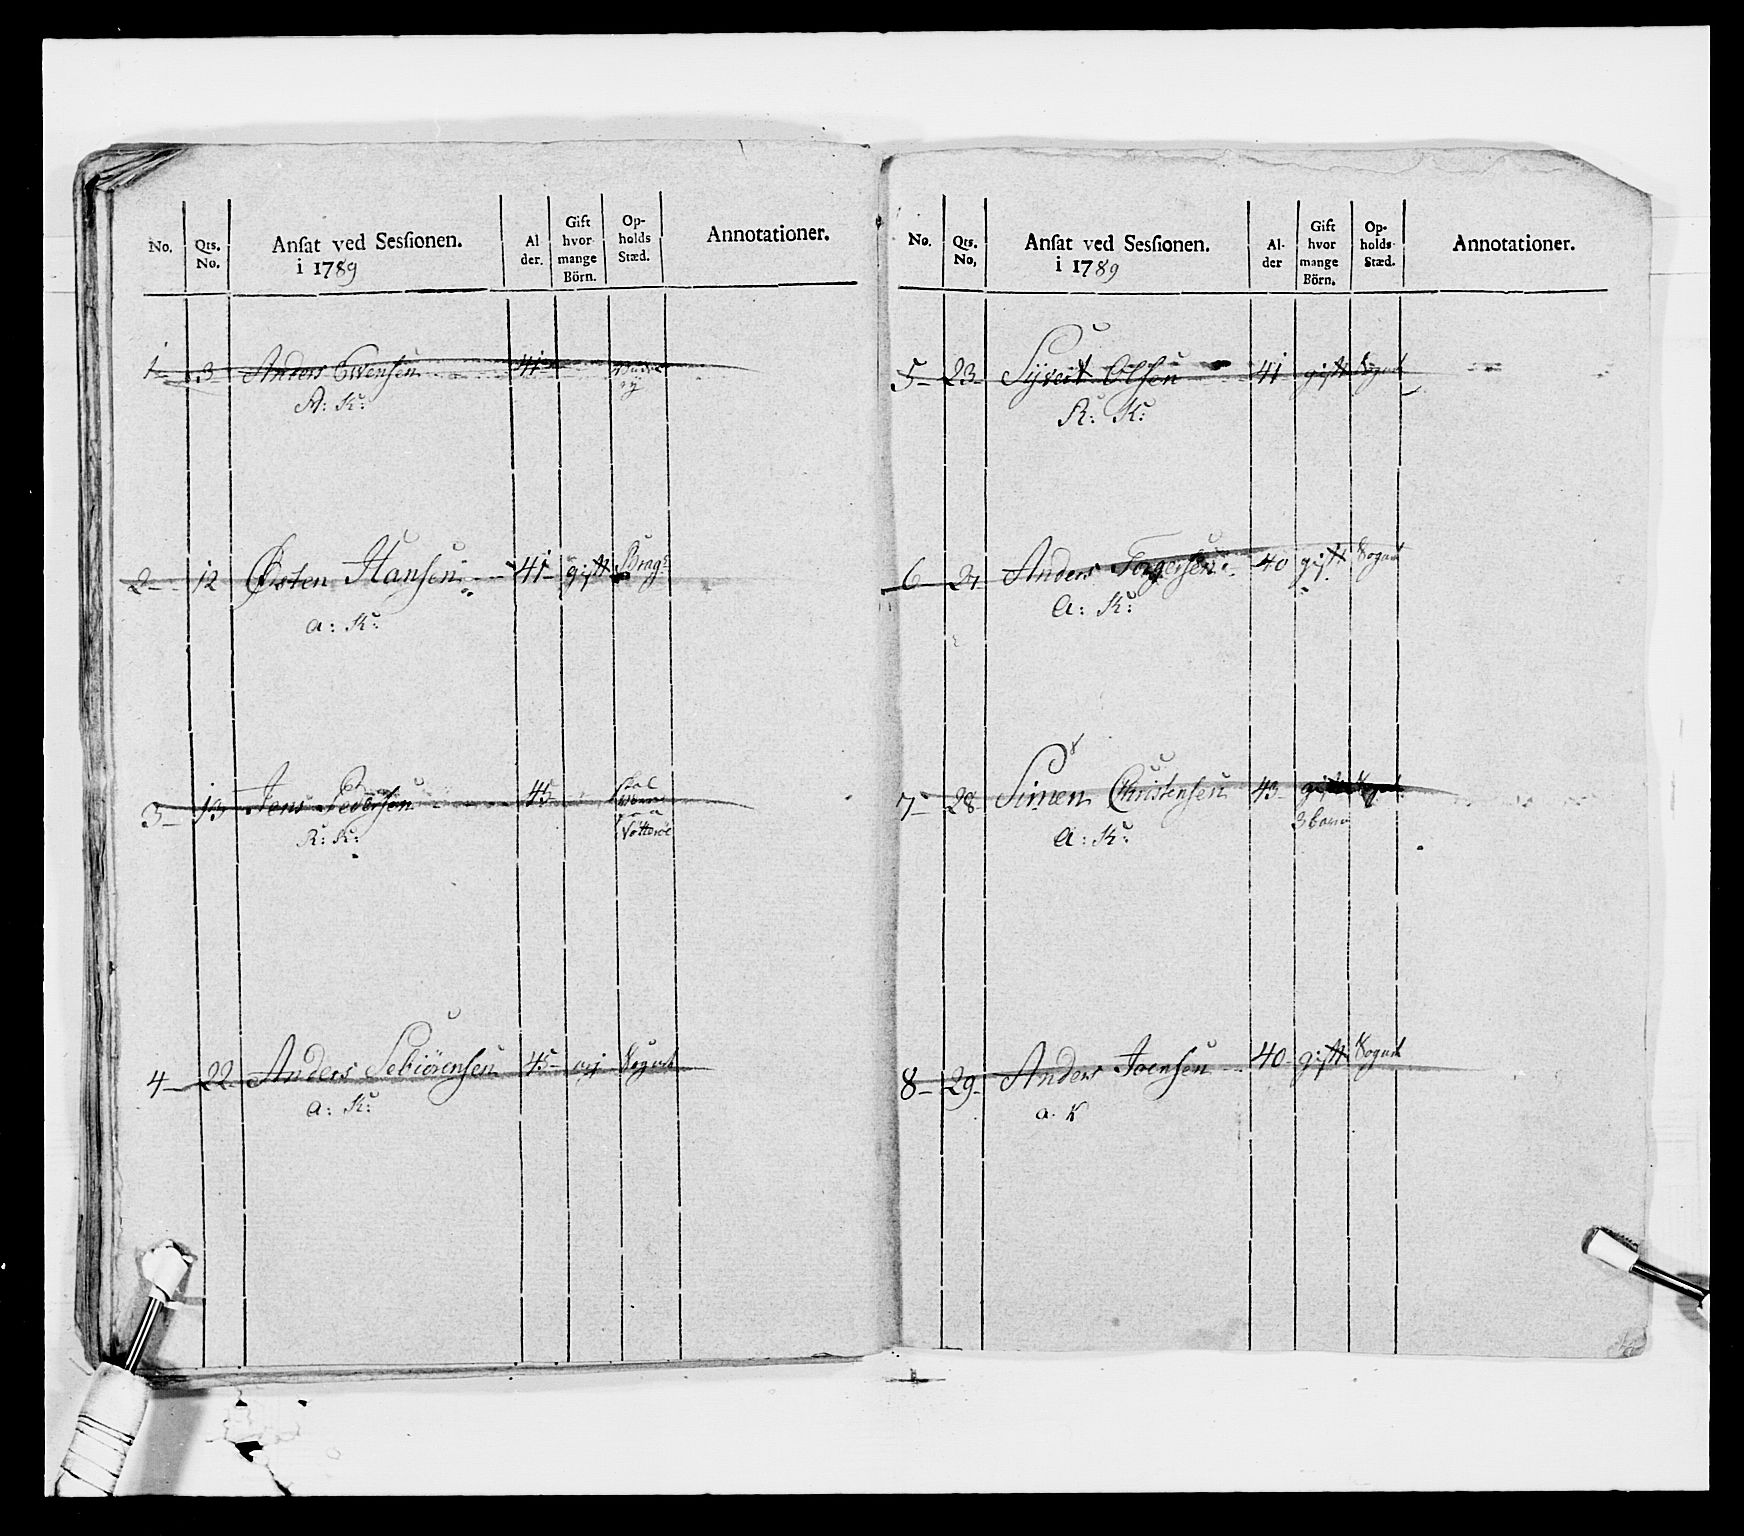 No. Qts. No. Ansat ved Sessionen. i 1789 Al der. Gift hvor mange Börn. Op- holds Stæd. Annotationer.
1 3 Anders Evensen 41
R: K:
2 12 Østen Hansen 41 gift Brag:
a: K:
3 13 Jens Pedersen 45
R: K:
4 22 Anders Sebiörensen 45 Sogned
a: K:
No. Qts. No, Ansat ved Sessionen. i 1789 Al- der Gift hvor mange Börn. Op- holds- Stæd. Annotationer.
5 23 Syvert Olsen 41 gift Sogned
R: K:
6 24 Anders Torgersen 40 gift Sogned
a: K:
7 28 Simen Christensen 43 gift Sogned
3 børn
a: K:
8 29 Anders Joensen 40 gift Sogned
a. K